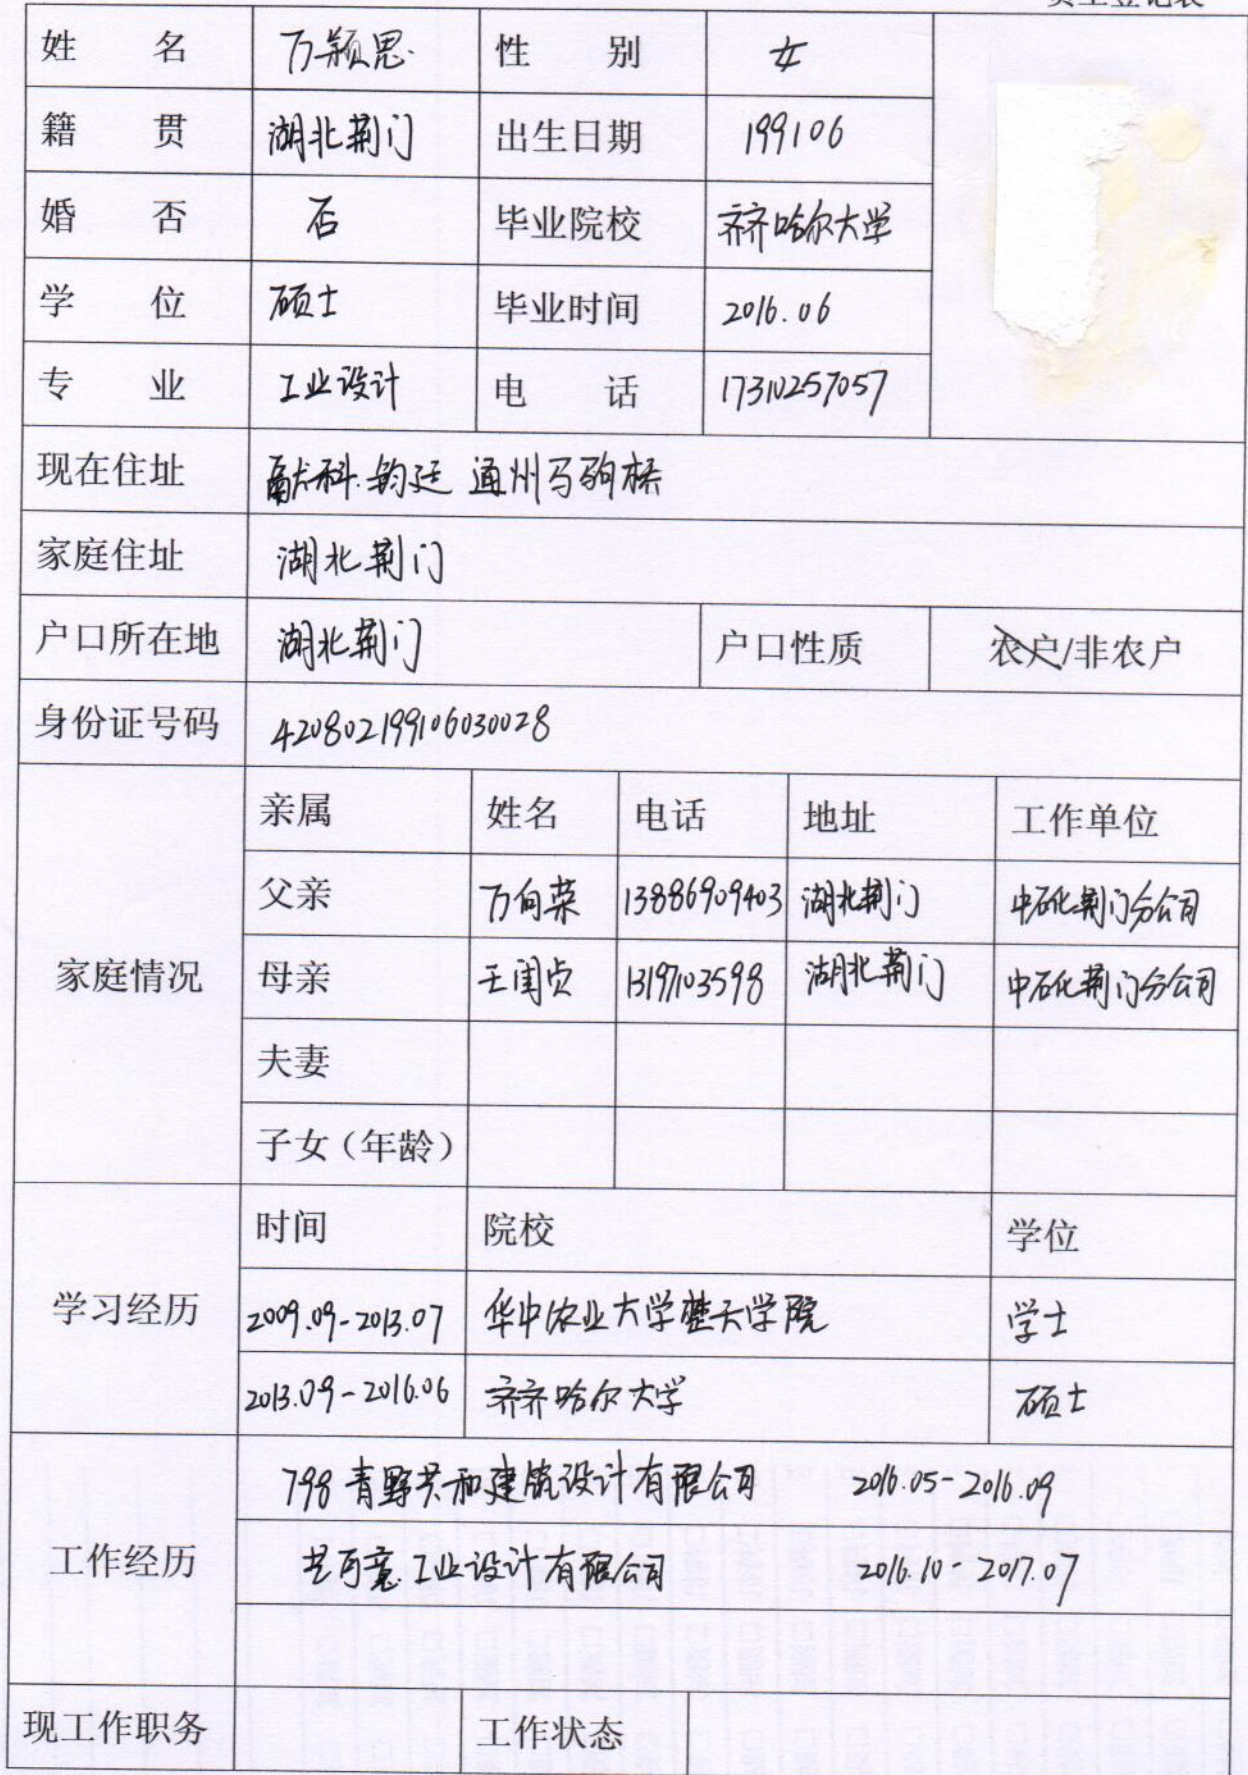 姓 名 万颖思 性 别 女
籍 贯 湖北荆门 出生日期 199106
婚 否 否 毕业院校 齐齐哈尔大学
学 位 硕士 毕业时间 2016.06
专 业 工业设计 电 话 17310257057
现在住址 献科.钧廷 通州马驹桥
家庭住址 湖北荆门
户口所在地 湖北荆门 户口性质 农户/非农户
身份证号码 420802199106030028
家庭情况
亲属 姓名 电话 地址 工作单位
父亲 万向荣 13886909403 湖北荆门 中石化荆门分公司
母亲 王闺贞 13197103598 湖北荆门 中石化荆门分公司
夫妻
子女（年龄）
学习经历
时间 院校 学位
2009.09-2013.07 华中农业大学楚天学院 学士
2013.09-2016.06 齐齐哈尔大学 硕士
工作经历
798 青野共和建筑设计有限公司 2016.05-2016.09
艺可意工业设计有限公司 2016.10-2017.07
现工作职务 工作状态